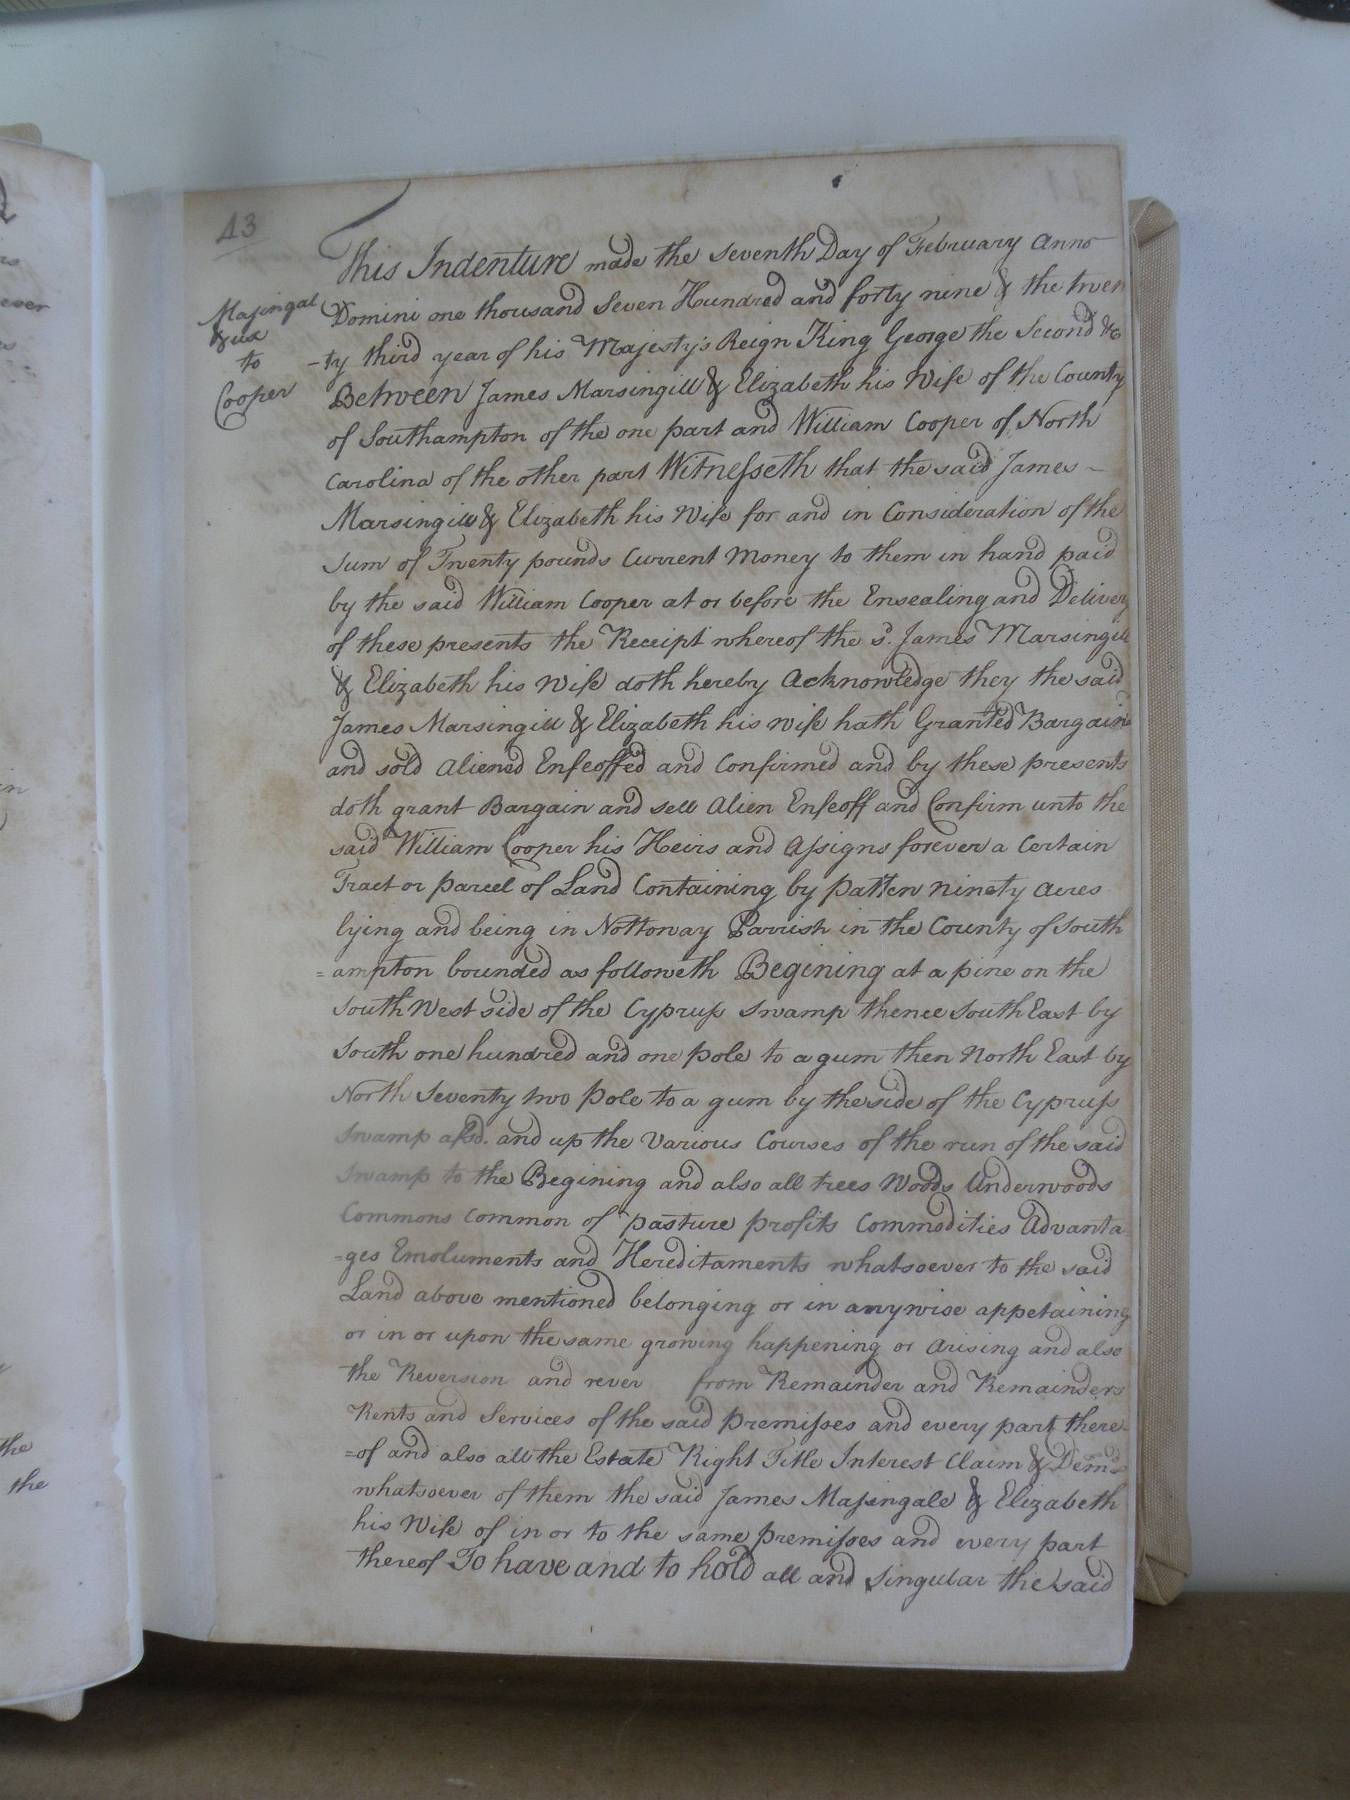 43
Massingal
& ux
to
Cooper
This Indenture made the seventh Day of February Anno
Domini one thousand Seven Hundred and forty nine & the twen
-ty third year of his Majesty's Reign King George the Second &c
Between James Marsingill & Elizabeth his Wife of the County
of Southampton of the one part and William Cooper of North
Carolina of the other part Witnesseth that the said James
Marsingill & Elizabeth his Wife for and in Consideration of the
Sum of Twenty pounds Current Money to them in hand paid
by the said William Cooper at or before the Ensealing and Delivery
of these presents the Receipt whereof the sd. James Marsingill
& Elizabeth his Wife doth hereby Acknowledge they the said
James Marsingill & Elizabeth his wife hath Granted Bargain
and sold Aliened Enfeoffed and Confirmed and by these presents
doth grant Bargain and sell Alien Enfeoff and Confirm unto the
said William Cooper his Heirs and Assigns forever a Certain
Tract or parcel of Land Containing by patten ninety Acres
lying and being in Nottoway Parrish in the County of South
=ampton bounded as followeth Begining at a pine on the
South West side of the Cypruss Swamp thence South East by
South one hundred and one pole to a gum then North East by
North Seventy two pole to a gum by the side of the Cypruss
Swamp afsd. and up the Various Courses of the run of the said
Swamp to the Begining and also all trees Woods Underwoods
Commons Common of pasture profits Commodities Advanta
-ges Emoluments and Hereditaments whatsoever to the said
Land above mentioned belonging or in anywise appetaining
or in or upon the same growing happening or Arising and also
the Reversion and rever from Remainder and Remainders
Rents and Services of the said premisses and every part there
=of and also all the Estate Right Title Interest Claim & Demds
whatsoever of them the said James Massingale & Elizabeth
his Wife of in or to the same premisses and every part
thereof To have and to hold all and Singular the said
ever
in
the
the